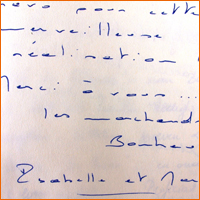 pour cette
merveilleuse
réalisation
Merci à vous ...
les marchands
Bonheur
Isabelle et